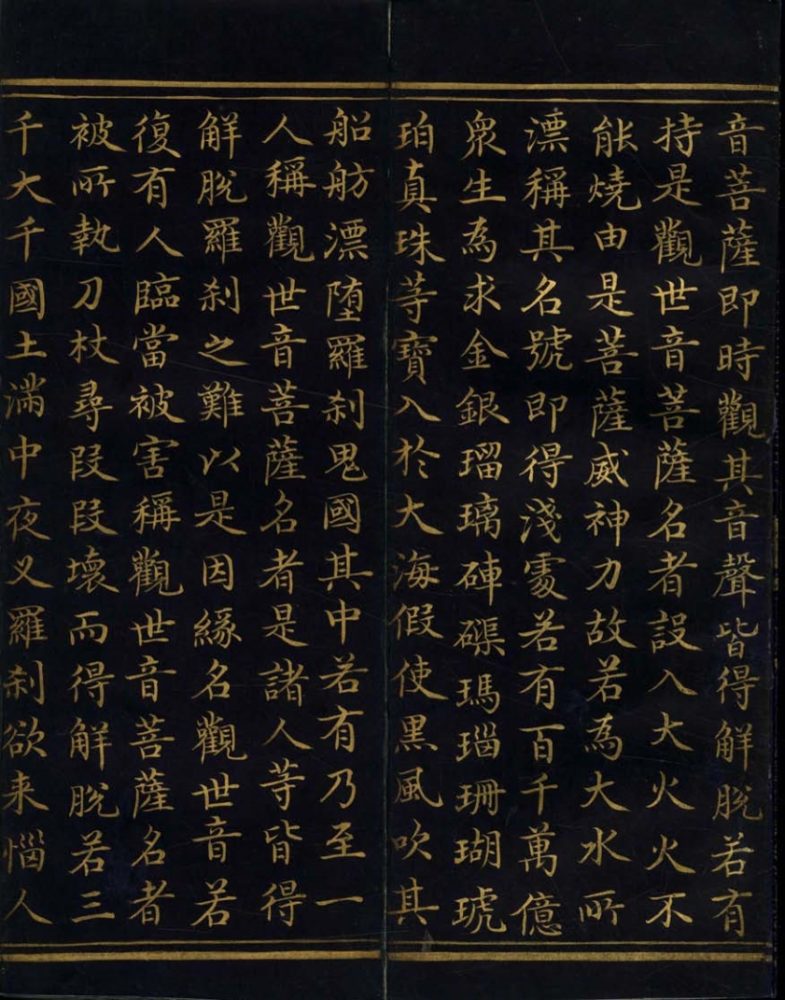 音菩薩即時觀其音聲皆得解脫若有
持是觀世音菩薩名者設入大火火不
能燒由是菩薩威神力故若為大水所
漂稱其名號即得淺處若有百千萬億
衆生為求金銀瑠璃硨磲瑪瑙珊瑚琥
珀真珠等寶入於大海假使黑風吹其
船舫漂墮羅剎鬼國其中若有乃至一
人稱觀世音菩薩名者是諸人等皆得
解脫羅剎之難以是因緣名觀世音若
復有人臨當被害稱觀世音菩薩名者
被所執刀杖尋段段壞而得解脫若三
千大千國土滿中夜叉羅剎欲来惱人